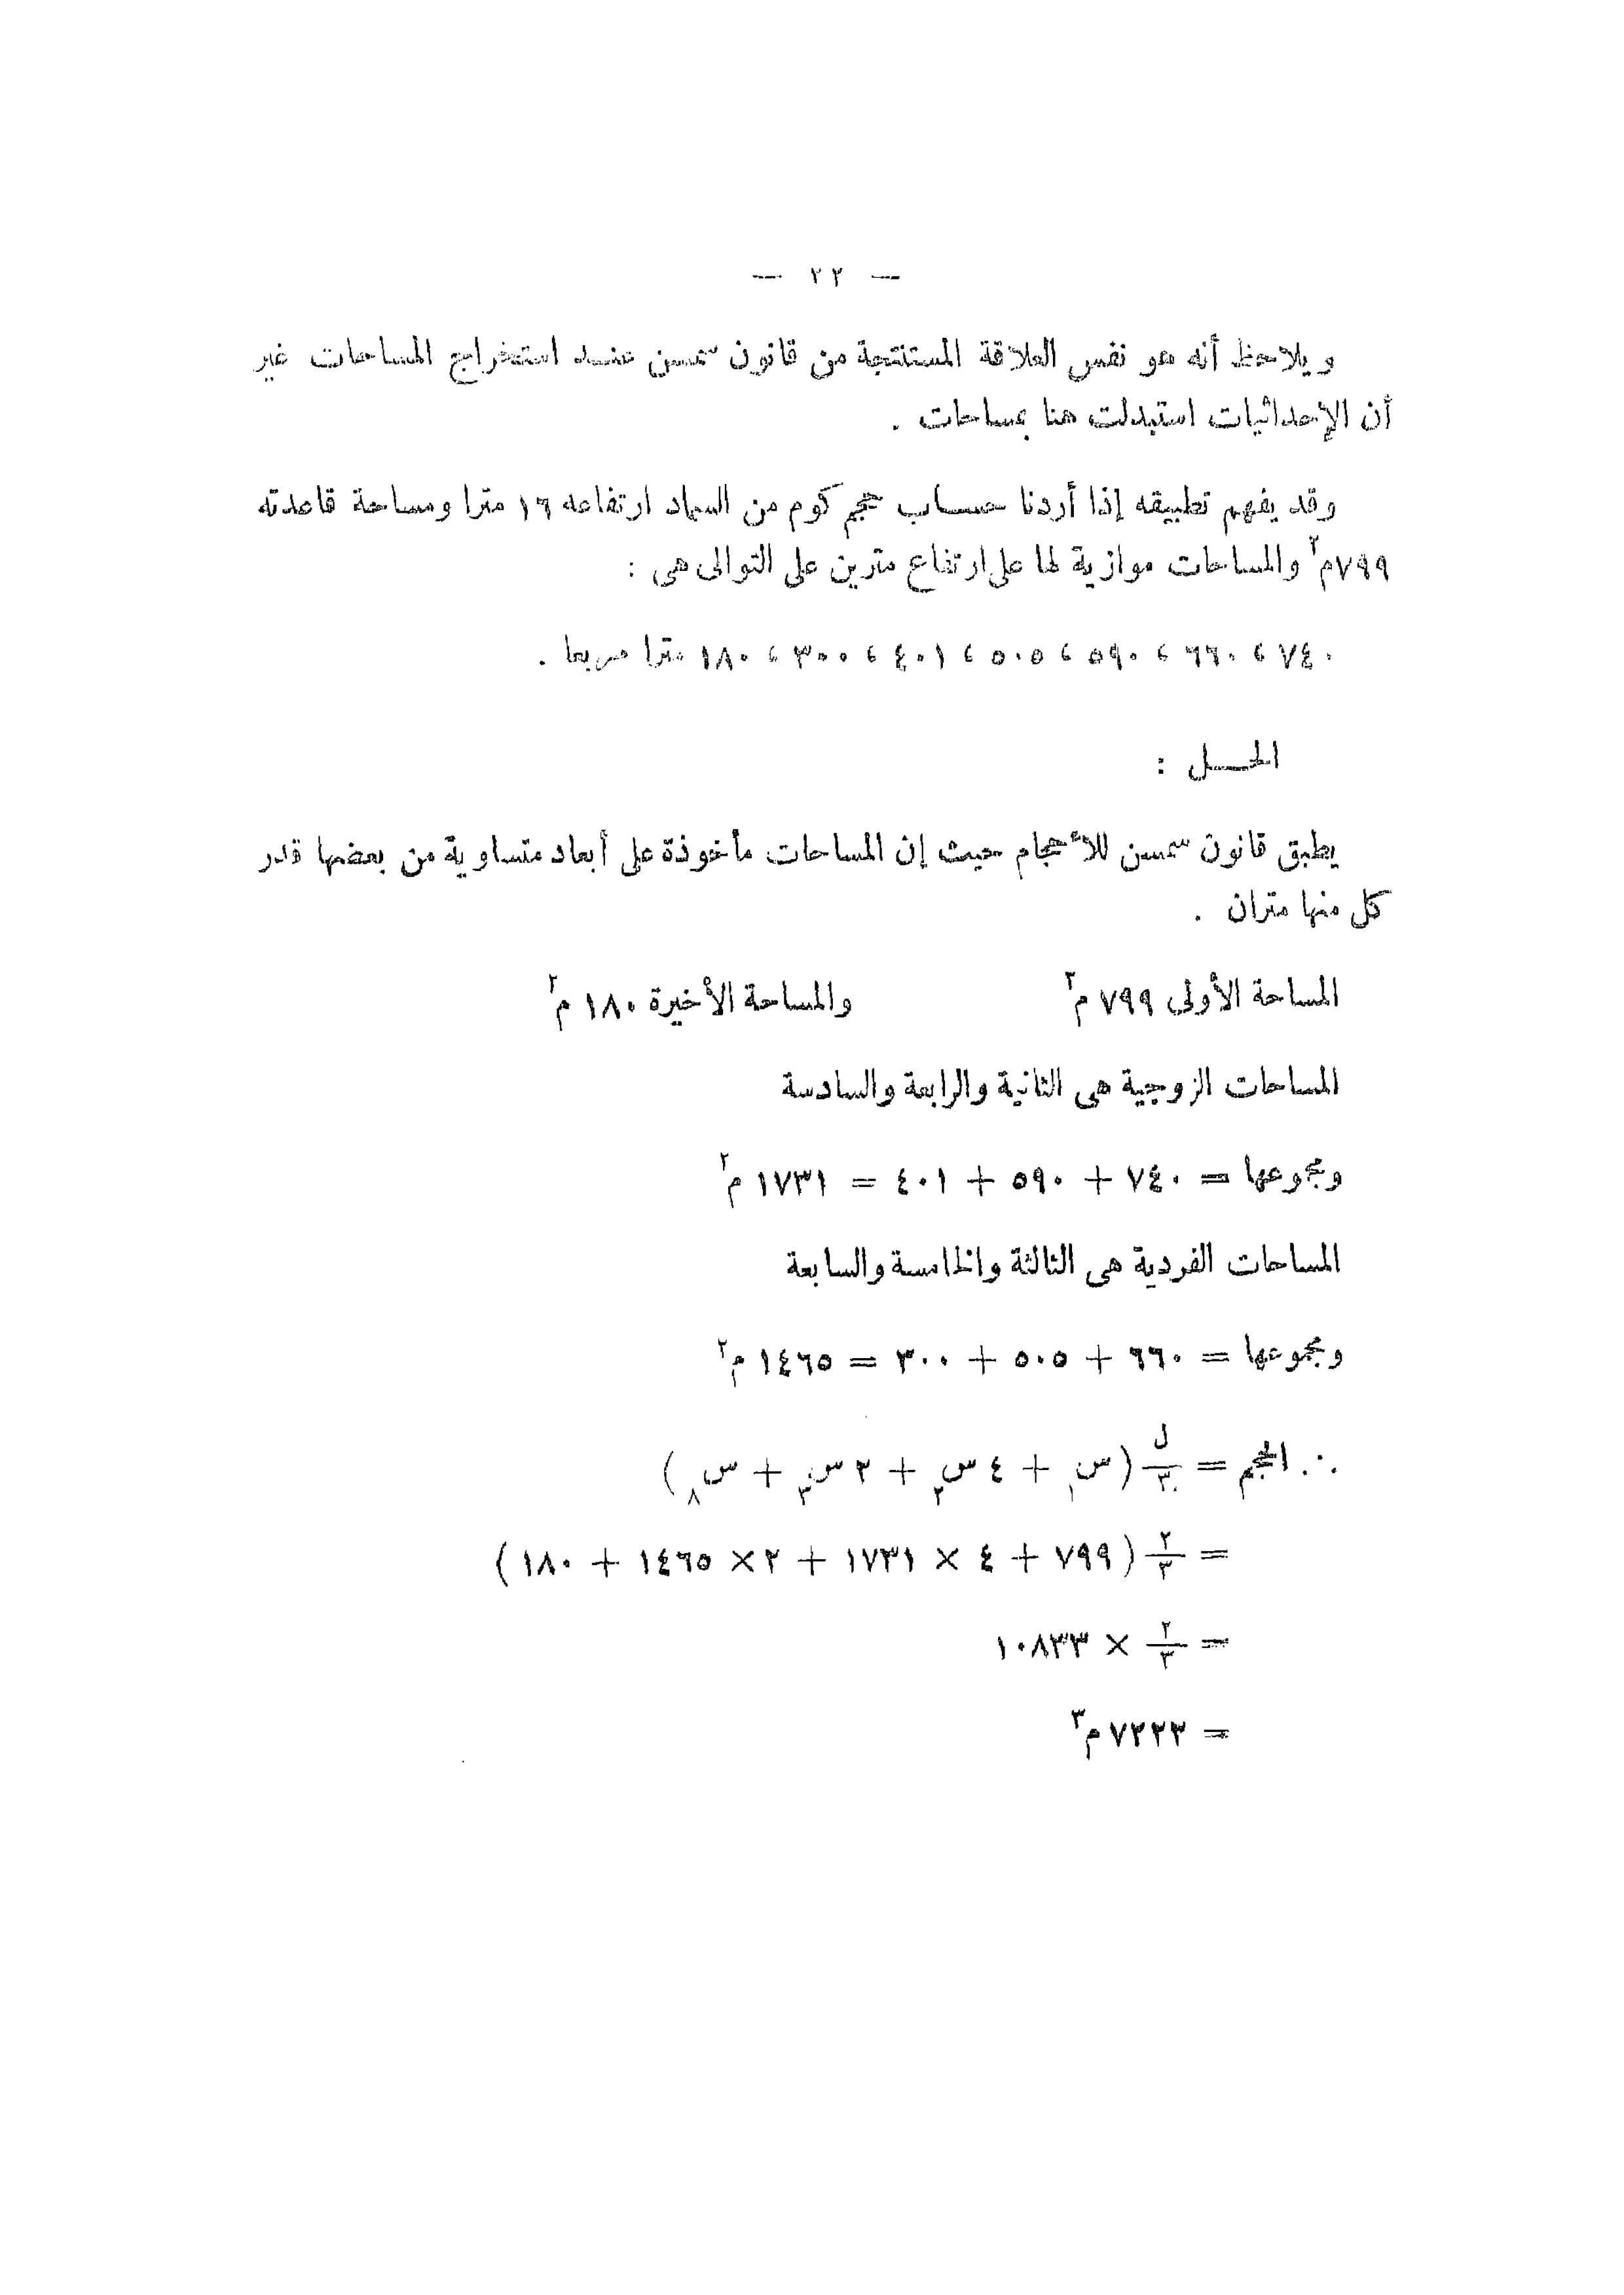 — ٢٢ —
ويلاحظ أنه هو نفس العلاقة المستنتجة من قانون سمسن عنـد استخراج المساحات غير
أن الإحداثيات استبدلت هنا بمساحات .
وقد يفهم تطبيقه إذا أردنا حساب حجم كوم من السماد ارتفاعه ١٦ مترا ومساحة قاعدته
٧٩٩م٢ والمساحات موازية لها على ارتفاع مترين على التوالى هى :
٧٤٠ ، ٦٦٠ ، ٥٩٠ ، ٥٠٥ ، ٤٠١ ، ٣٠٠ ، ١٨٠ مترا مربعا .
الحـــل :
يطبق قانون سمسن للأحجام حيث إن المساحات مأخوذة على أبعاد متساوية من بعضها قدر
كل منها متران .
المساحة الأولى ٧٩٩ م٢ والمساحة الأخيرة ١٨٠ م٢
المساحات الزوجية هى الثانية والرابعة والسادسة
ومجموعها = ٧٤٠ + ٥٩٠ + ٤٠١ = ١٧٣١ م٢
المساحات الفردية هى الثالثة والخامسة والسابعة
ومجموعها = ٦٦٠ + ٥٠٥ + ٣٠٠ = ١٤٦٥ م٢
∴ الحجم = ل/٣ (س١ + ٤ س٢ + ٢ س٣ + س٨)
= ٢/٣ (٧٩٩ + ٤ × ١٧٣١ + ٢ × ١٤٦٥ + ١٨٠)
= ٢/٣ × ١٠٨٣٣
= ٧٢٢٣ م٣